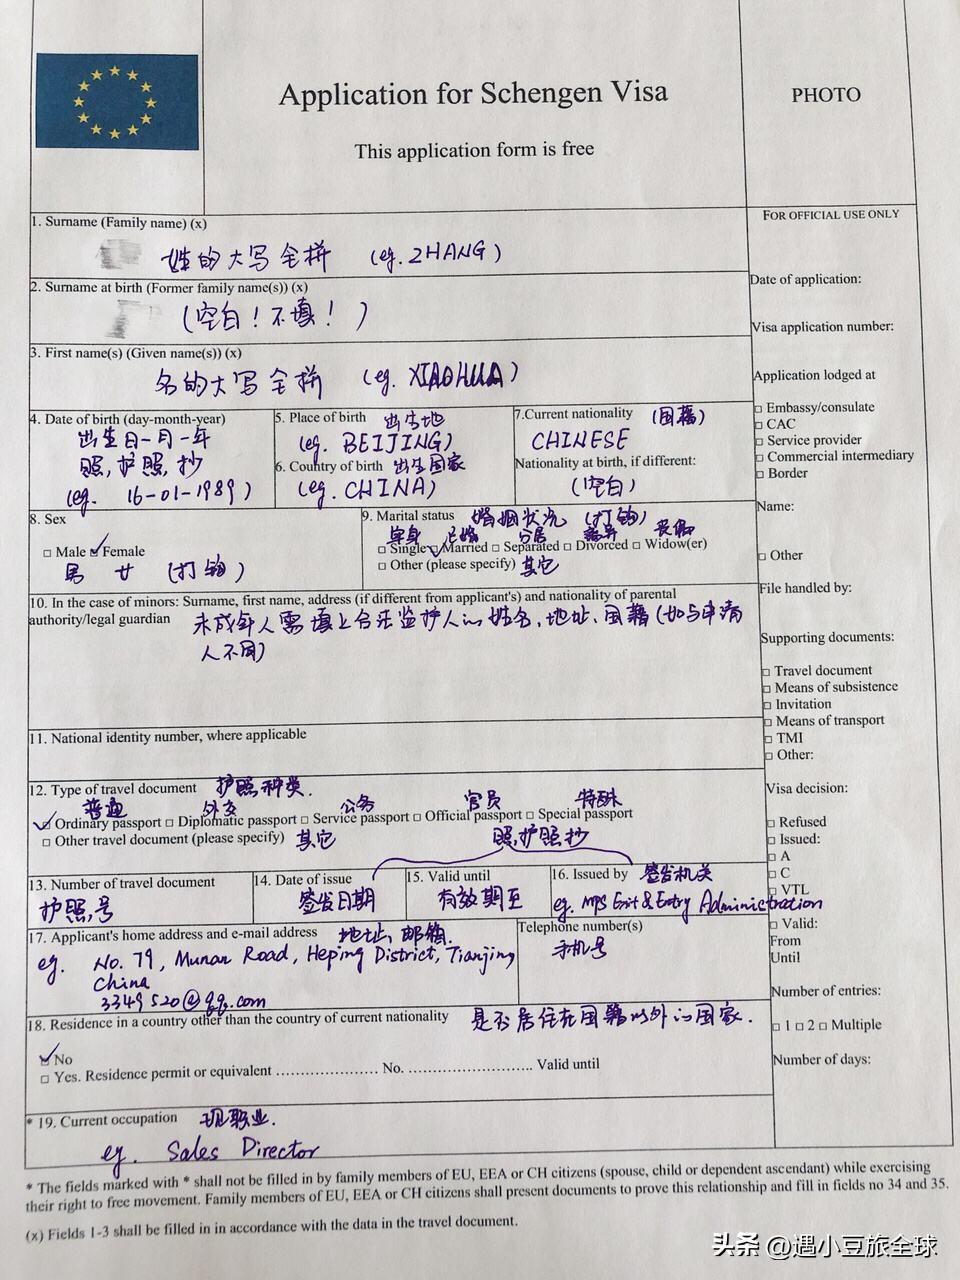 Application for Schengen Visa
This application form is free
PHOTO
1. Surname (Family name) (x)
姓的大写全拼 (eg. ZHANG)
2. Surname at birth (Former family name(s)) (x)
(空白！不填！)
3. First name(s) (Given name(s)) (x)
名的大写全拼 (eg. XIAOHUA)
4. Date of birth (day-month-year)
出生日-月-年
照护照抄
(eg. 16-01-1989)
5. Place of birth 出生地
(eg. BEIJING)
6. Country of birth 出生国家
(eg. CHINA)
7.Current nationality (国籍)
CHINESE
Nationality at birth, if different:
(空白)
8. Sex
Male Female
男 女 (打钩)
9. Marital status 婚姻状况 (打钩)
单身 已婚 分居 离异 丧偶
Single Married Separated Divorced Widow(er)
Other (please specify) 其它
10. In the case of minors: Surname, first name, address (if different from applicant's) and nationality of parental
authority/legal guardian 未成年人需填上合法监护人的姓名、地址、国籍(如与申请
人不同)
11. National identity number, where applicable
12. Type of travel document 护照种类.
普通 外交 公务 官员 特殊
Ordinary passport Diplomatic passport Service passport Official passport Special passport
Other travel document (please specify) 其它
照护照抄
13. Number of travel document
护照号
14. Date of issue
签发日期
15. Valid until
有效期至
16. Issued by 签发机关
eg. MPS Exit & Entry Administration
17. Applicant's home address and e-mail address 地址、邮箱.
eg. No. 79, Munan Road, Heping District, Tianjing,
China
3349520@qq.com
Telephone number(s)
手机号
18. Residence in a country other than the country of current nationality 是否居住在国籍以外的国家.
No
Yes. Residence permit or equivalent ..................... No. ......................... Valid until
* 19. Current occupation 现职业.
eg. Sales Director
FOR OFFICIAL USE ONLY
Date of application:
Visa application number:
Application lodged at
Embassy/consulate
CAC
Service provider
Commercial intermediary
Border
Name:
Other
File handled by:
Supporting documents:
Travel document
Means of subsistence
Invitation
Means of transport
TMI
Other:
Visa decision:
Refused
Issued:
A
C
VTL
Valid:
From
Until
Number of entries:
1 2 Multiple
Number of days:
* The fields marked with * shall not be filled in by family members of EU, EEA or CH citizens (spouse, child or dependent ascendant) while exercising
their right to free movement. Family members of EU, EEA or CH citizens shall present documents to prove this relationship and fill in fields no 34 and 35.
(x) Fields 1-3 shall be filled in in accordance with the data in the travel document.
头条 @遇小豆旅全球